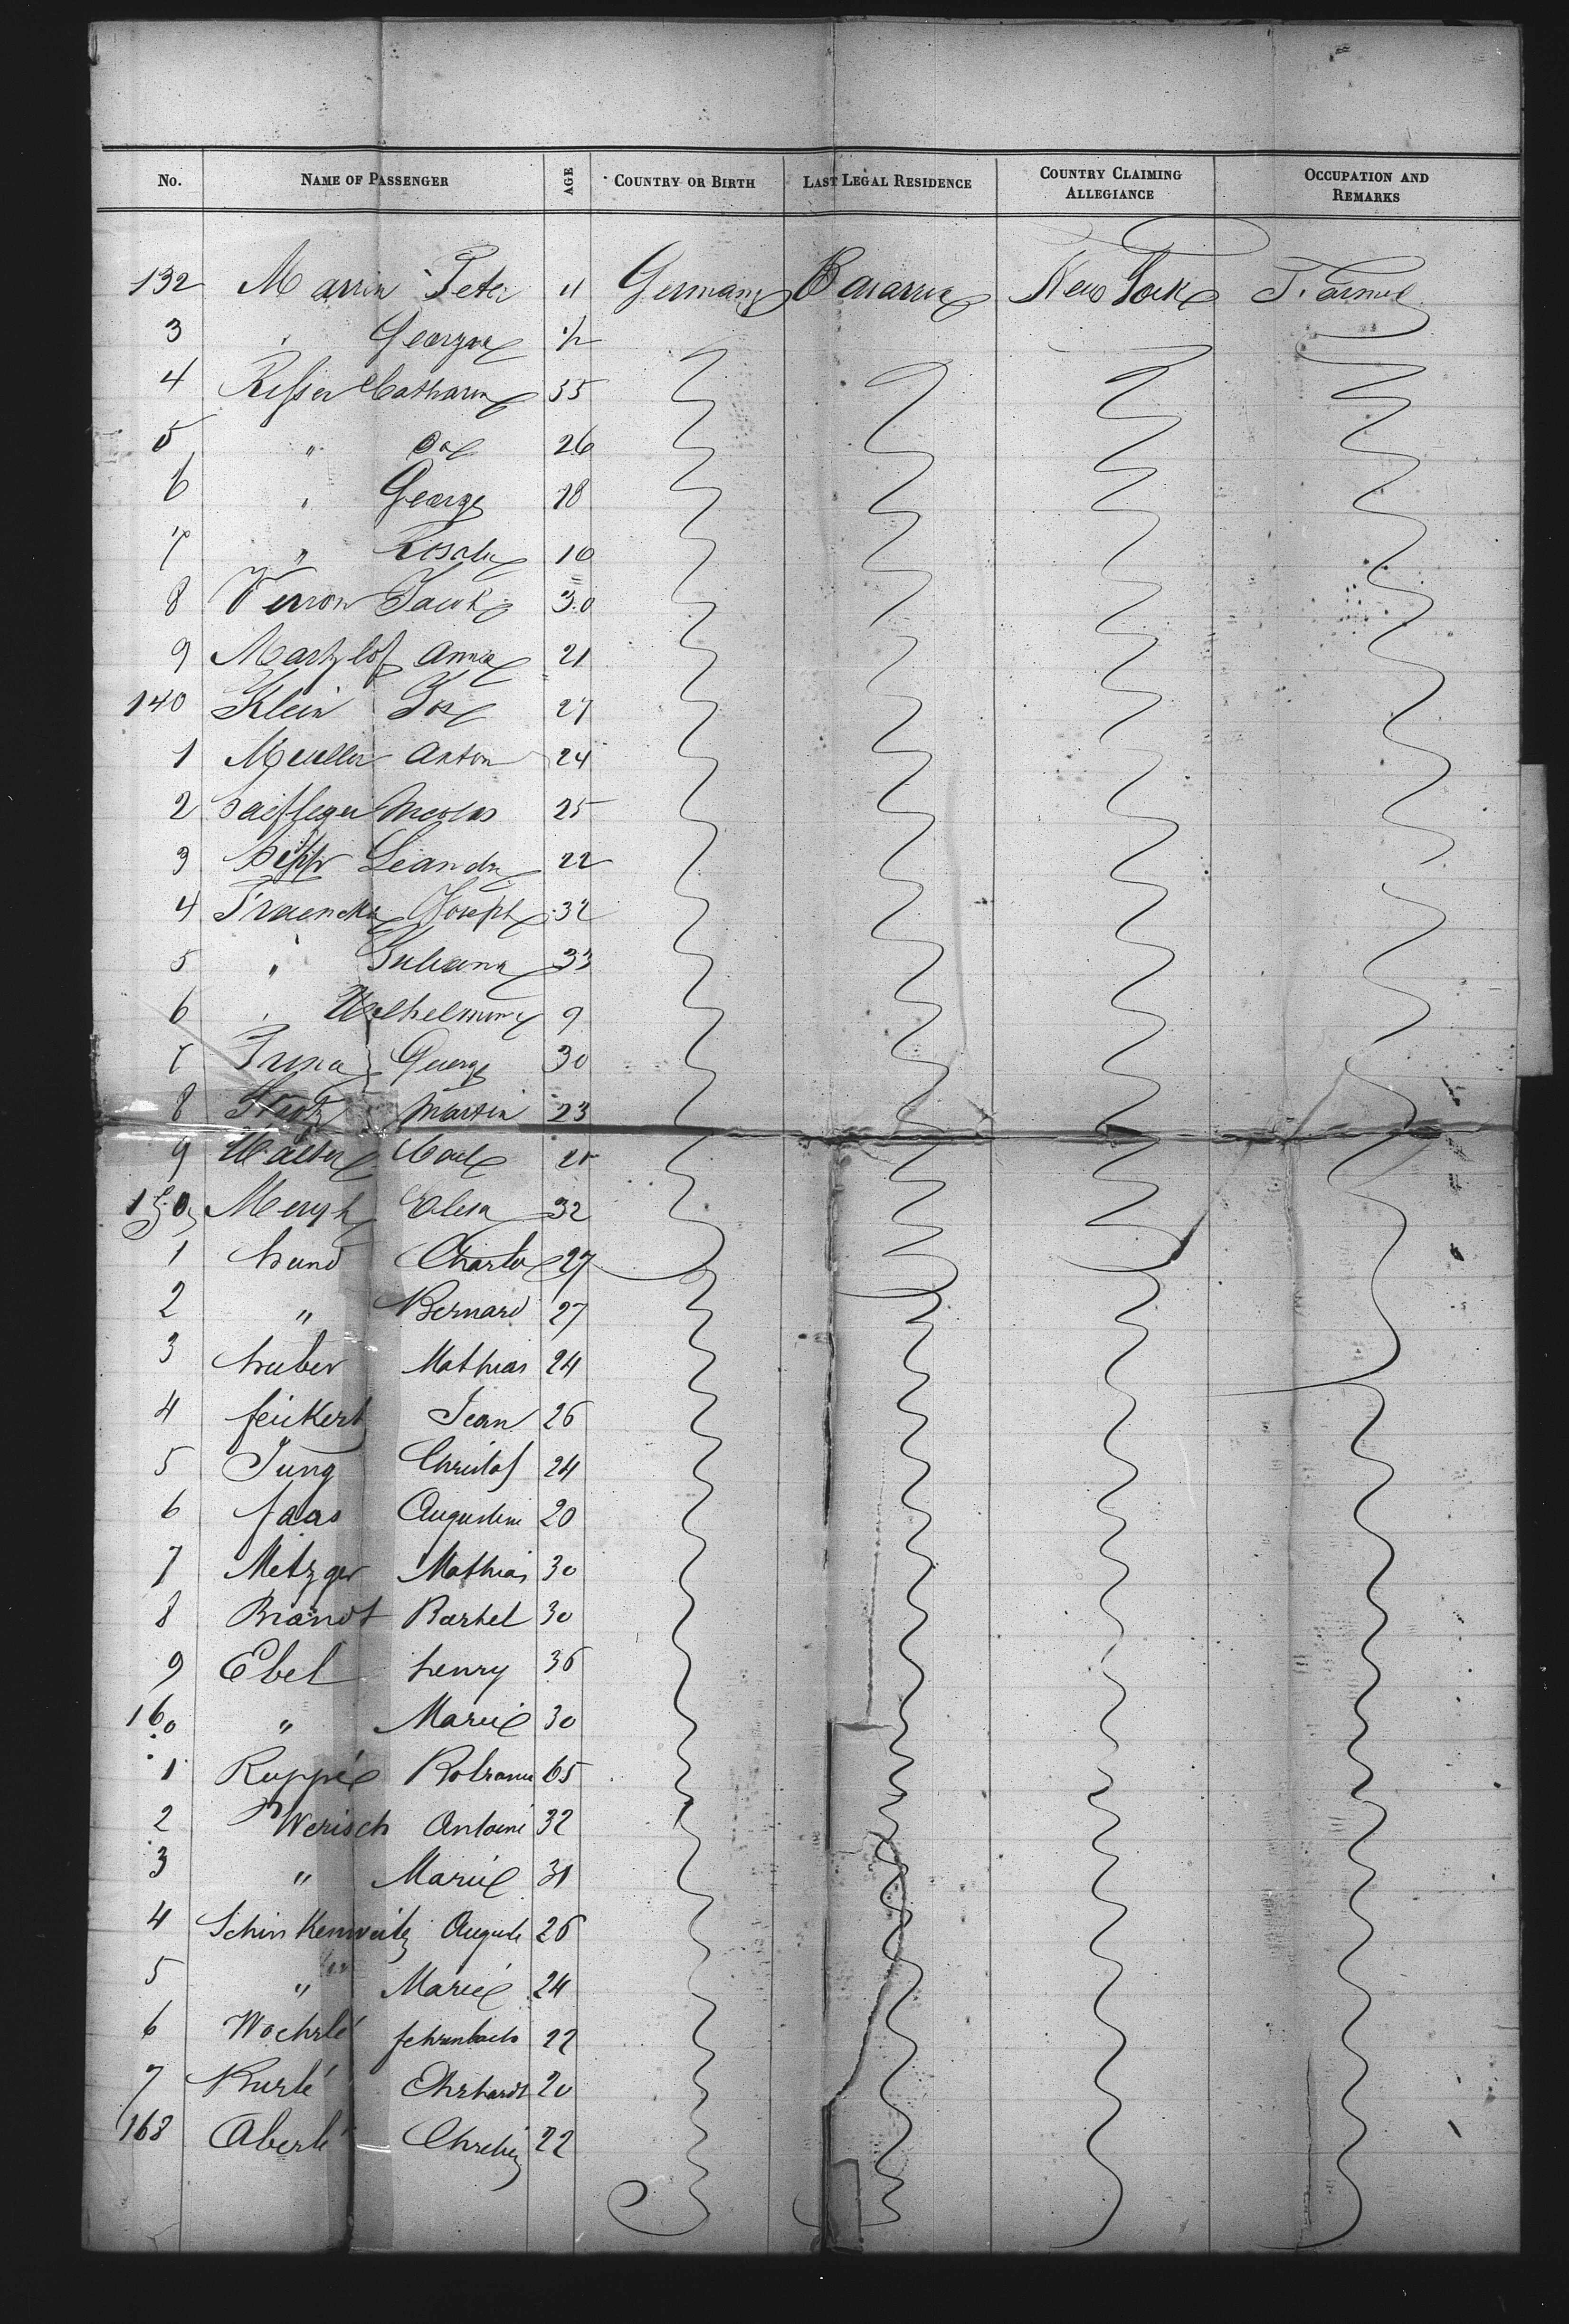 No. NAME OF PASSENGER AGE COUNTRY OR BIRTH LAST LEGAL RESIDENCE COUNTRY CLAIMING ALLEGIANCE OCCUPATION AND REMARKS
132 Peter 11 Germany Bavaria New York
3 " George 1/2
4 Risser Catharin 35
5 " 26
6 " George 18
7 " Rosalie 10
8 Verron Jacob 30
9 Martzlof Anna 21
140 Klein Jos 27
1 Mueller Anton 24
2 Nicolas 25
3 Hipp Leandre 22
4 Joseph 32
5 " Juliana 33
6 " Wilhelmine 9
7 George 30
8 Martin 23
9 Walter Carl
150 Elisa 32
1 hund Charles 27
2 " Bernard 27
3 huber Mathias 24
4 feickert Jean 26
5 Jung Christof 24
6 faas Augustine 20
7 Metzger Mathias 30
8 Brandt Barthel 30
9 Ebel henry 36
160 " Marie 30
1 Ruppé 65
2 Werisch Antoine 32
3 " Marie 31
4 Schinkenweitz Auguste 26
5 " Marie 24
6 Woehrlé fehrenbach 22
7 Kurlé Ehrhardt 20
168 Aberlé Chretien 22